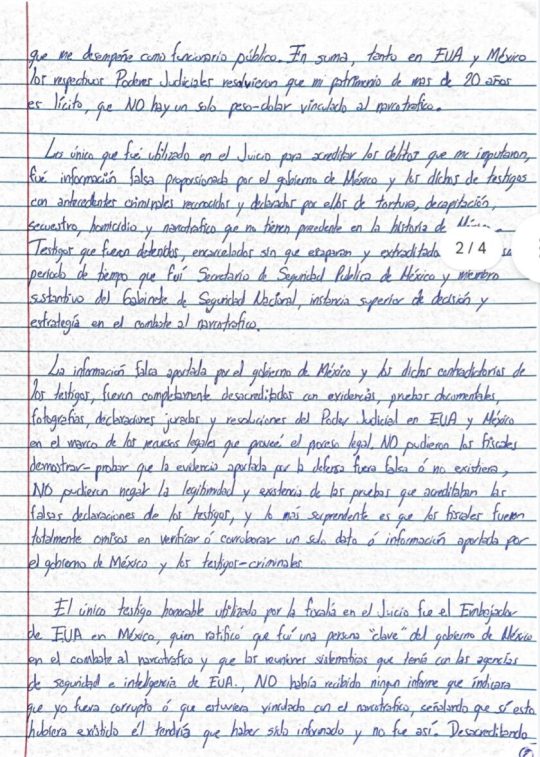 que me desempeñe como funcionario público. En suma, tanto en EUA y México
los respectivos Poderes Judiciales resolvieron que mi patrimonio de mas de 20 años
es lícito, que NO hay un solo peso-dolar vinculado al narcotrafico.
Lo único que fué utilizado en el Juicio para acreditar los delitos que me imputaron,
fué información falsa proporsionada por el gobierno de México y los dichos de testigos
con antecedentes criminales reconocidos y declarados por ellos de tortura, decapitación,
secuestro, homicidio y narcotrafico que no tienen precedente en la historia de
Testigos que fueron detenidos, encarcelados sin que escaparan y extraditado
2/4
periodo de tiempo que fuí Secretario de Seguridad Publica de México y miembro
sustantivo del Gabinete de Seguridad Nacional, instancia superior de decisión y
estrategia en el combate al narcotrafico.
La información falsa aportada por el gobierno de México y los dichos contradictorios de
los testigos, fueron completamente desacreditados con evidencias, pruebas documentales,
fotografias, declaraciones juradas y resoluciones del Poder Judicial en EUA y México
en el marco de los recursos legales que proveé el proceso legal. NO pudieron los fiscales
demostrar-probar que la evidencia aportada por la defensa fuera falsa ó no existiera,
NO pudieron negar la legitimidad y existencia de las pruebas que acreditaban las
falsas declaraciones de los testigos, y lo más sorprendente es que los fiscales fueron
totalmente omisos en verificar ó corroborar un solo dato ó información aportada por
el gobierno de México y los testigos-criminales
El único testigo honorable utilizado por la fiscalía en el Juicio fue el Embajador
de EUA en México, quien ratificó que fuí una persona "clave" del gobierno de México
en el combate al narcotrafico y que las reuniones sistematicas que tenía con las agencias
de seguridad e inteligencia de EUA., NO había recibido ningun informe que indicara
que yo fuera corrupto ó que estuviera vinclado con el narcotrafico, señalando que sí esto
hubiera existido él tendría que haber sido informado y no fue así. Desacreditando